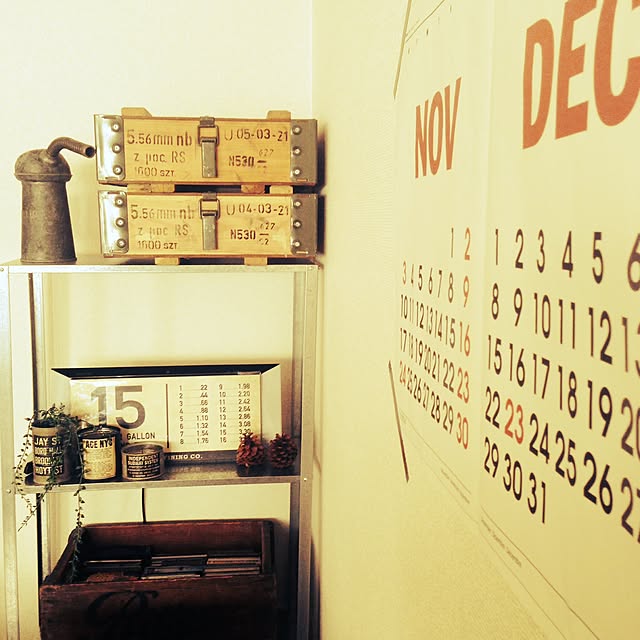 5.56mm nb
z poc. RS
1000 SZT
U 05-03-21
N530
5.56mm nb
z poc. RS
1000 SZT
U 04-03-21
N530
15
GALLON
1 .22 9 1.98
2 .44 10 2.20
3 .66 11 2.42
4 .88 12 2.64
5 1.10 13 2.86
6 1.32 14 3.08
7 1.54 15
8 1.76 16
JAY S
HOYT ST
INDEPEN
SUBWAY SYSTEM
NING CO.
NOV
1 2
3 4 5 6 7 8 9
10 11 12 13 14 15 16
17 18 19 20 21 22 23
24 25 26 27 28 29 30
DEC
1 2 3 4 5 6
8 9 10 11 12 1
15 16 17 18 19 20
22 23 24 25 26 27
29 30 31